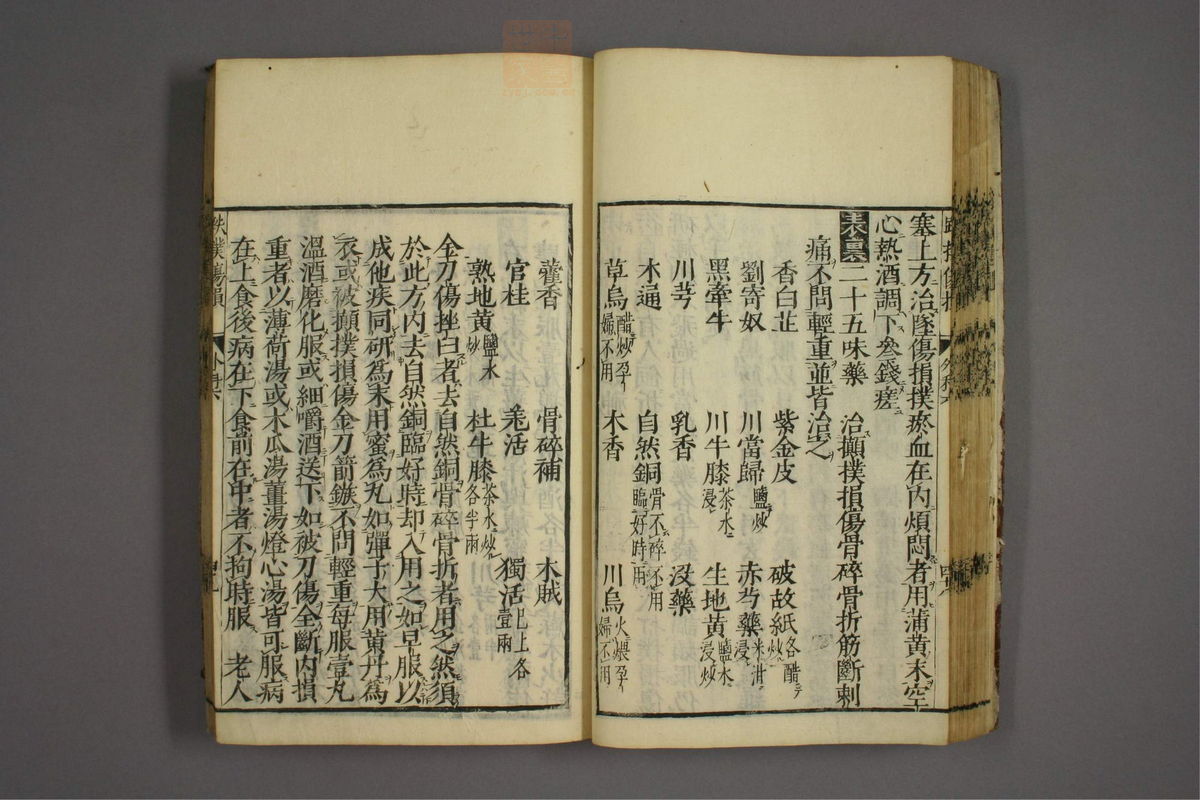 塞上方治墜傷損撲瘀血在内煩悶者用蒲黄末空
心熱酒調下叄錢瘥
表裏二十五味藥 治攧撲損傷骨碎骨折筋斷刺
痛不問輕重並皆治之
香白芷 紫金皮 破故紙各醋炒
劉寄奴 川當歸鹽炒 赤芍藥米泔浸
黑牽牛 川牛膝茶水浸 生地黄鹽水浸炒
川芎 乳香 没藥
木通 自然銅骨不碎不用臨好時用
草烏醋炒孕婦不用 木香 川烏火煨孕婦不用
藿香 骨碎補 木賊
官桂 羌活 獨活已上各壹兩
熟地黄鹽水炒 杜牛膝茶水炒各半兩
金刀傷挫臼者去自然銅骨碎骨折者用之然須
於此方内去自然銅臨好時却入用之如早服以
成他疾同研為末用蜜為丸如彈子大用黄丹為
衣或被攧撲損傷金刀箭鏃不問輕重每服壹丸
溫酒磨化服或細嚼酒送下如被刀傷全斷内損
重者以薄荷湯或木瓜湯薑湯燈心湯皆可服病
在上食後病在下食前在中者不拘時服 老人
跌撲傷損